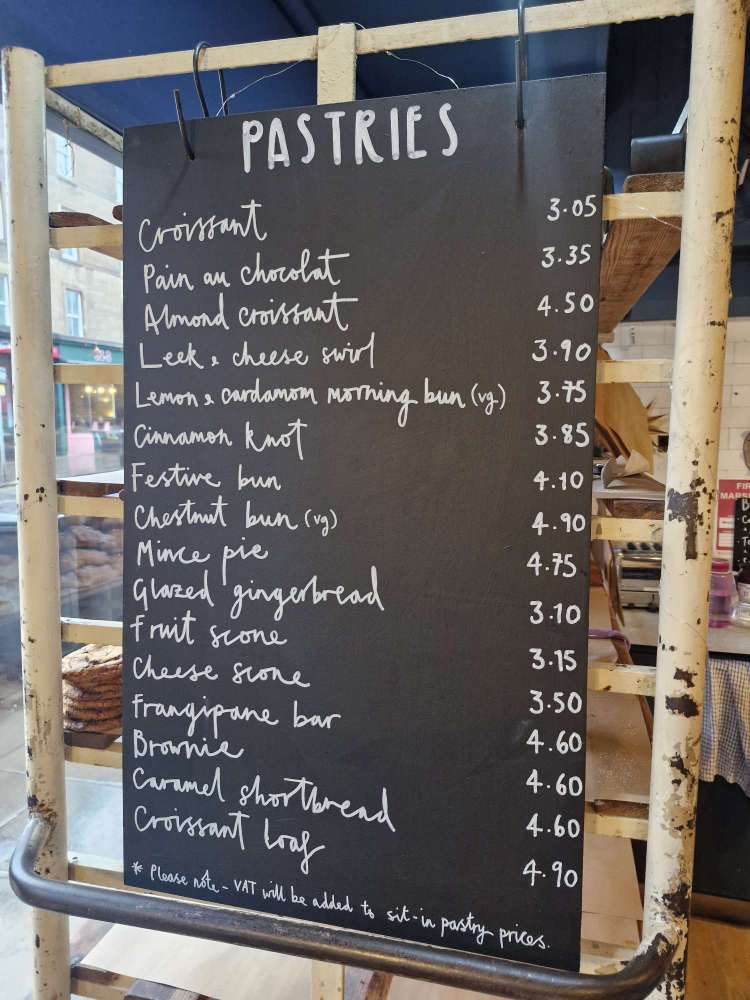 PASTRIES
Croissant 3.05
Pain au chocolat 3.35
Almond croissant 4.50
Leek & cheese swirl 3.90
Lemon & cardamom morning bun (vg) 3.75
Cinnamon knot 3.85
Festive bun 4.10
Chestnut bun (vg) 4.90
Mince pie 4.75
Glazed gingerbread 3.10
Fruit scone 3.15
Cheese scone 3.50
Frangipane bar 4.60
Brownie 4.60
Caramel shortbread 4.60
Croissant loaf 4.90
* Please note - VAT will be added to sit-in pastry prices.